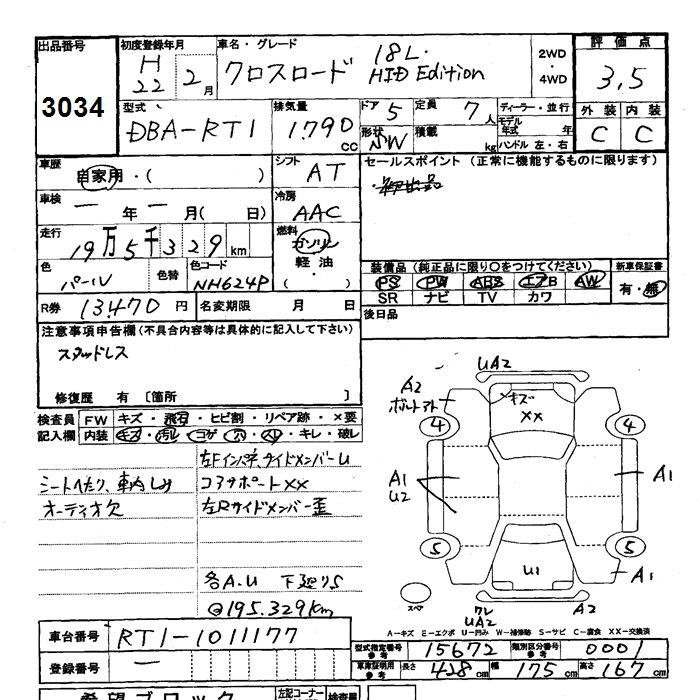 出品番号
3034
初度登録年月
H
22年 2月
車名・グレード
クロスロード 18L.
HID Edition
2WD
・
4WD
評価点
3,5
外装 内装
C C
型式
DBA-RT1
排気量
1.790 cc
ドア 5
定員 7人
形状 SW
積載 kg
ディーラー・並行
モデル年式 年
ハンドル 左・右
車歴
自家用・( )
シフト AT
車検
ー年ー月( 日)
冷房 AAC
走行
19万5千329km
燃料
ガソリン
軽油
( ・ )
色
パール
色替
色コード
NH624P
R券 13.470円
名変期限 月 日
セールスポイント (正常に機能するものに限ります)
装備品 (純正品に限り○をつけてください)
PS PW ABS エアB AW
SR ナビ TV カワ
新車保証書
有・無
後日品
注意事項申告欄(不具合内容等は具体的に記入して下さい)
スタッドレス
修復歴 有 [箇所 ]
検査員記入欄
FW キズ・飛石・ヒビ割・リペア跡・×要
内装 キズ・汚レ・コゲ・穴・スレ・キレ・破レ
左Fインパネ,サイドメンバーU
コアサポートXX
左Rサイドメンバー歪
シートへたり、車内しみ
オーディオ欠
各A.U 下廻りS
@195.329km
UA2
キズ
XX
A2
4
4
A1
U2
A1
5
5
U1
A1
スペア
ワレ
UA2
A2
A-キズ E-エクボ U-凹み W-補修跡 S-サビ C-腐食 XX-交換済
車台番号 RT1-1011177
登録番号 ー
型式指定番号 参考 15672
類別区分番号 参考 0001
車庫証明用 参考 長さ 428cm 幅 175cm 高さ 167cm
希望ブロック
左記コーナー
検査員